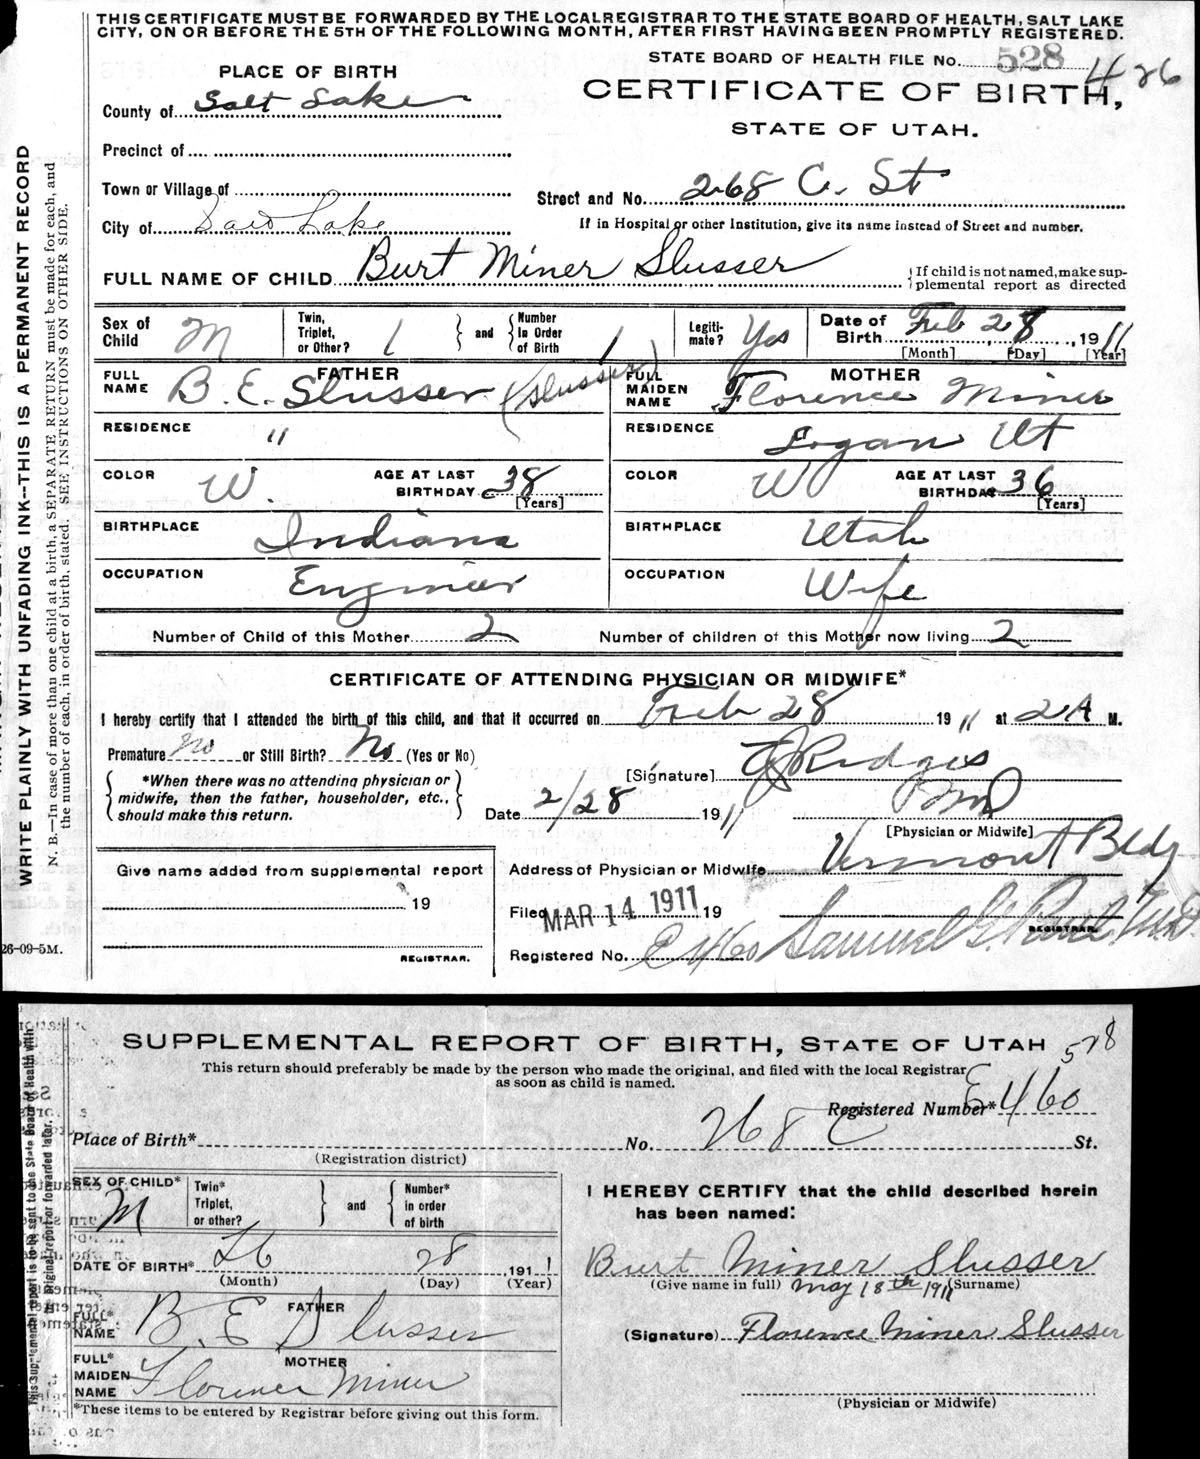 THIS CERTIFICATE MUST BE FORWARDED BY THE LOCAL REGISTRAR TO THE STATE BOARD OF HEALTH, SALT LAKE
CITY, ON OR BEFORE THE 5TH OF THE FOLLOWING MONTH, AFTER FIRST HAVING BEEN PROMPTLY REGISTERED.
STATE BOARD OF HEALTH FILE No. 528 426
PLACE OF BIRTH
CERTIFICATE OF BIRTH,
County of Salt Lake
STATE OF UTAH.
Precinct of
Town or Village of
Street and No. 268 C. St
City of Salt Lake
If in Hospital or other Institution, give its name instead of Street and number.
FULL NAME OF CHILD Burt Miner Slusser
If child is not named, make sup-
plemental report as directed
Sex of Child M Twin, Triplet, or Other? 1 and Number In Order of Birth 1 Legiti-mate? Yes Date of Birth Feb 28, 1911
[Month] [Day] [Year]
FATHER
MOTHER
FULL NAME B. E. Slusser (Slusser)
FULL MAIDEN NAME Florence Miner
RESIDENCE "
RESIDENCE Logan Ut
COLOR W. AGE AT LAST BIRTHDAY 38 [Years]
COLOR W AGE AT LAST BIRTHDAY 36 [Years]
BIRTHPLACE Indiana
BIRTHPLACE Utah
OCCUPATION Engineer
OCCUPATION Wife
Number of Child of this Mother 2 Number of children of this Mother now living 2
CERTIFICATE OF ATTENDING PHYSICIAN OR MIDWIFE*
I hereby certify that I attended the birth of this child, and that it occurred on Feb 28 1911 at 2 A M.
Premature No or Still Birth? No (Yes or No)
[Signature] Ridges
MD
*When there was no attending physician or
midwife, then the father, householder, etc.,
should make this return.
Date 2/28 1911
[Physician or Midwife]
Give name added from supplemental report
19
REGISTRAR.
Address of Physician or Midwife Vermont Bldg
Filed MAR 14 1911 19
Samuel G. Paul M.D.
REGISTRAR.
Registered No. E 460
26-09-5M.
WRITE PLAINLY WITH UNFADING INK--THIS IS A PERMANENT RECORD
N. B.—In case of more than one child at a birth, a SEPARATE RETURN must be made for each, and
the number of each, in order of birth, stated. SEE INSTRUCTIONS ON OTHER SIDE.
SUPPLEMENTAL REPORT OF BIRTH, STATE OF UTAH 528
This return should preferably be made by the person who made the original, and filed with the local Registrar
as soon as child is named.
Registered Number* E 460
Place of Birth* No. 268 C St.
(Registration district)
SEX OF CHILD* M Twin* Triplet, or other? and Number* in order of birth
DATE OF BIRTH* Feb 28, 1911
(Month) (Day) (Year)
FATHER
FULL* NAME B. E Slusser
MOTHER
FULL* MAIDEN NAME Florence Miner
*These items to be entered by Registrar before giving out this form.
I HEREBY CERTIFY that the child described herein
has been named:
Burt Miner Slusser
(Give name in full) May 18th 1911 (Surname)
(Signature) Florence Miner Slusser
(Physician or Midwife)
This Supplemental report is to be sent to the State Board of Health with
original report or forwarded later.